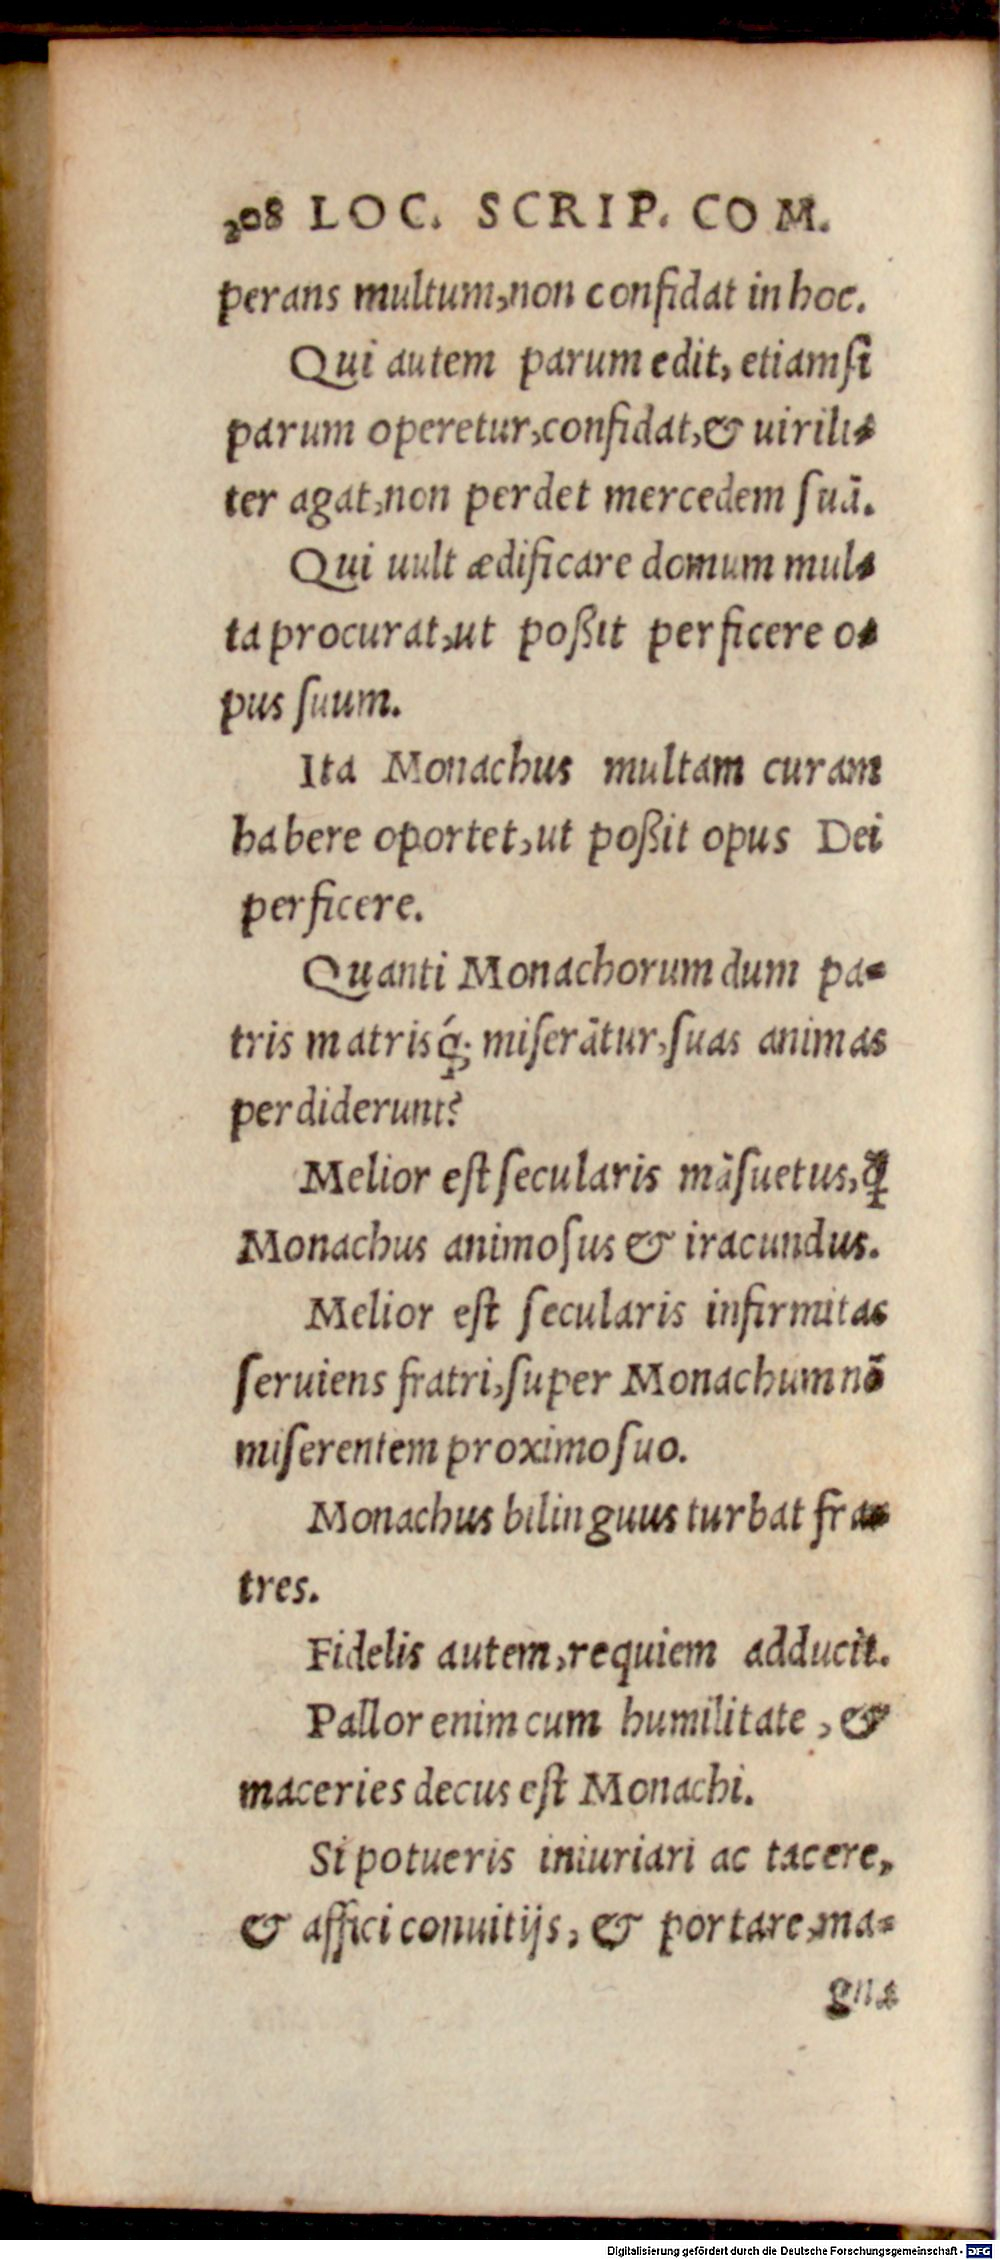 208 LOC. SCRIP. COM.
perans multum,non confidat in hoc.
Qui autem parum edit, etiamſi
parum operetur,confidat,& uirili-
ter agat,non perdet mercedem ſuā.
Qui uult ædificare domum mul-
ta procurat,ut poßit perficere o-
pus ſuum.
Ita Monachus multam curam
habere oportet,ut poßit opus Dei
perficere.
Quanti Monachorum dum pa-
tris matrisq́; miſerātur,ſuas animas
perdiderunt?
Melior est ſecularis māſuetus,q̄
Monachus animoſus & iracundus.
Melior est ſecularis infirmitas
ſeruiens fratri,ſuper Monachum nō
miſerentem proximo ſuo.
Monachus bilinguus turbat fra-
tres.
Fidelis autem,requiem adducit.
Pallor enim cum humilitate , &
maceries decus est Monachi.
Si potueris iniuriari ac tacere,
& affici conuitijs, & portare,ma-
gna
Digitalisierung gefördert durch die Deutsche Forschungsgemeinschaft - DFG